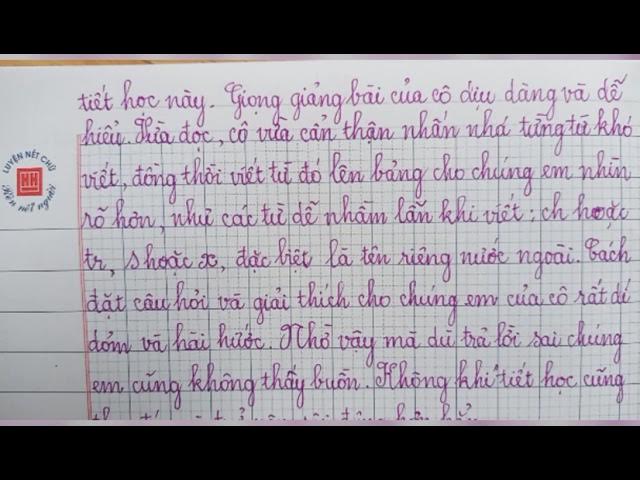 tiết học này. Giọng giảng bài của cô dịu dàng và dễ
hiểu. Vừa đọc, cô vừa cẩn thận nhấn nhá từng từ khó
viết, đồng thời viết từ đó lên bảng cho chúng em nhìn
rõ hơn, như các từ dễ nhầm lẫn khi viết: ch hoặc
tr, s hoặc x, đặc biệt là tên riêng nước ngoài. Cách
đặt câu hỏi và giải thích cho chúng em của cô rất dí
dỏm và hài hước. Nhờ vậy mà dù trả lời sai chúng
em cũng không thấy buồn. Không khí tiết học cũng
LUYỆN NÉT CHỮ
Rèn nết người